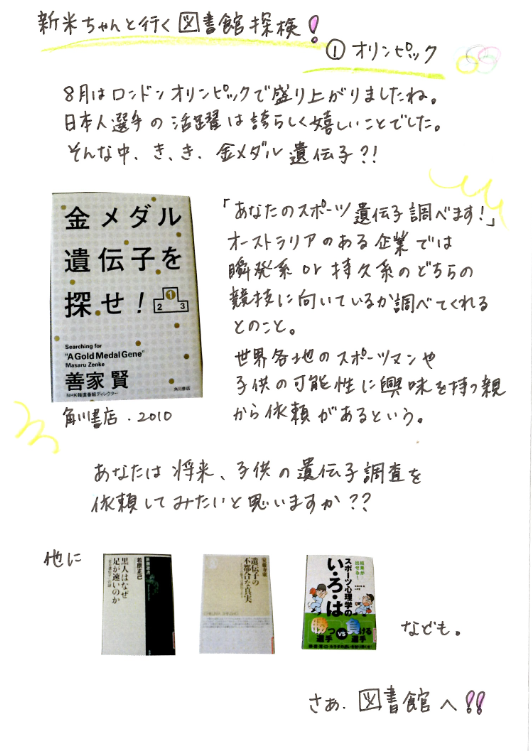 新米ちゃんと行く図書館探検!
①オリンピック
8月はロンドンオリンピックで盛り上がりましたね。
日本人選手の活躍は誇らしく嬉しいことでした。
そんな中、き、き、金メダル遺伝子?!
金メダル
遺伝子を
探せ!
1
2 3
Searching for
"A Gold Medal Gene"
Masaru Zenke
善家 賢
角川書店
角川書店.2010
「あなたのスポーツ遺伝子調べます!」
オーストラリアのある企業では
瞬発系or持久系のどちらの
競技に向いているか調べてくれる
とのこと。
世界各地のスポーツマンや
子供の可能性に興味を持つ親
から依頼があるという。
あなたは将来、子供の遺伝子調査を
依頼してみたいと思いますか??
他に
黒人はなぜ
足が速いのか
若原正己
遺伝子の
不都合な真実
安藤寿康
スポーツ心理学の
い・ろ・は
勝つ選手
VS
負ける選手
なども。
さぁ、図書館へ!!